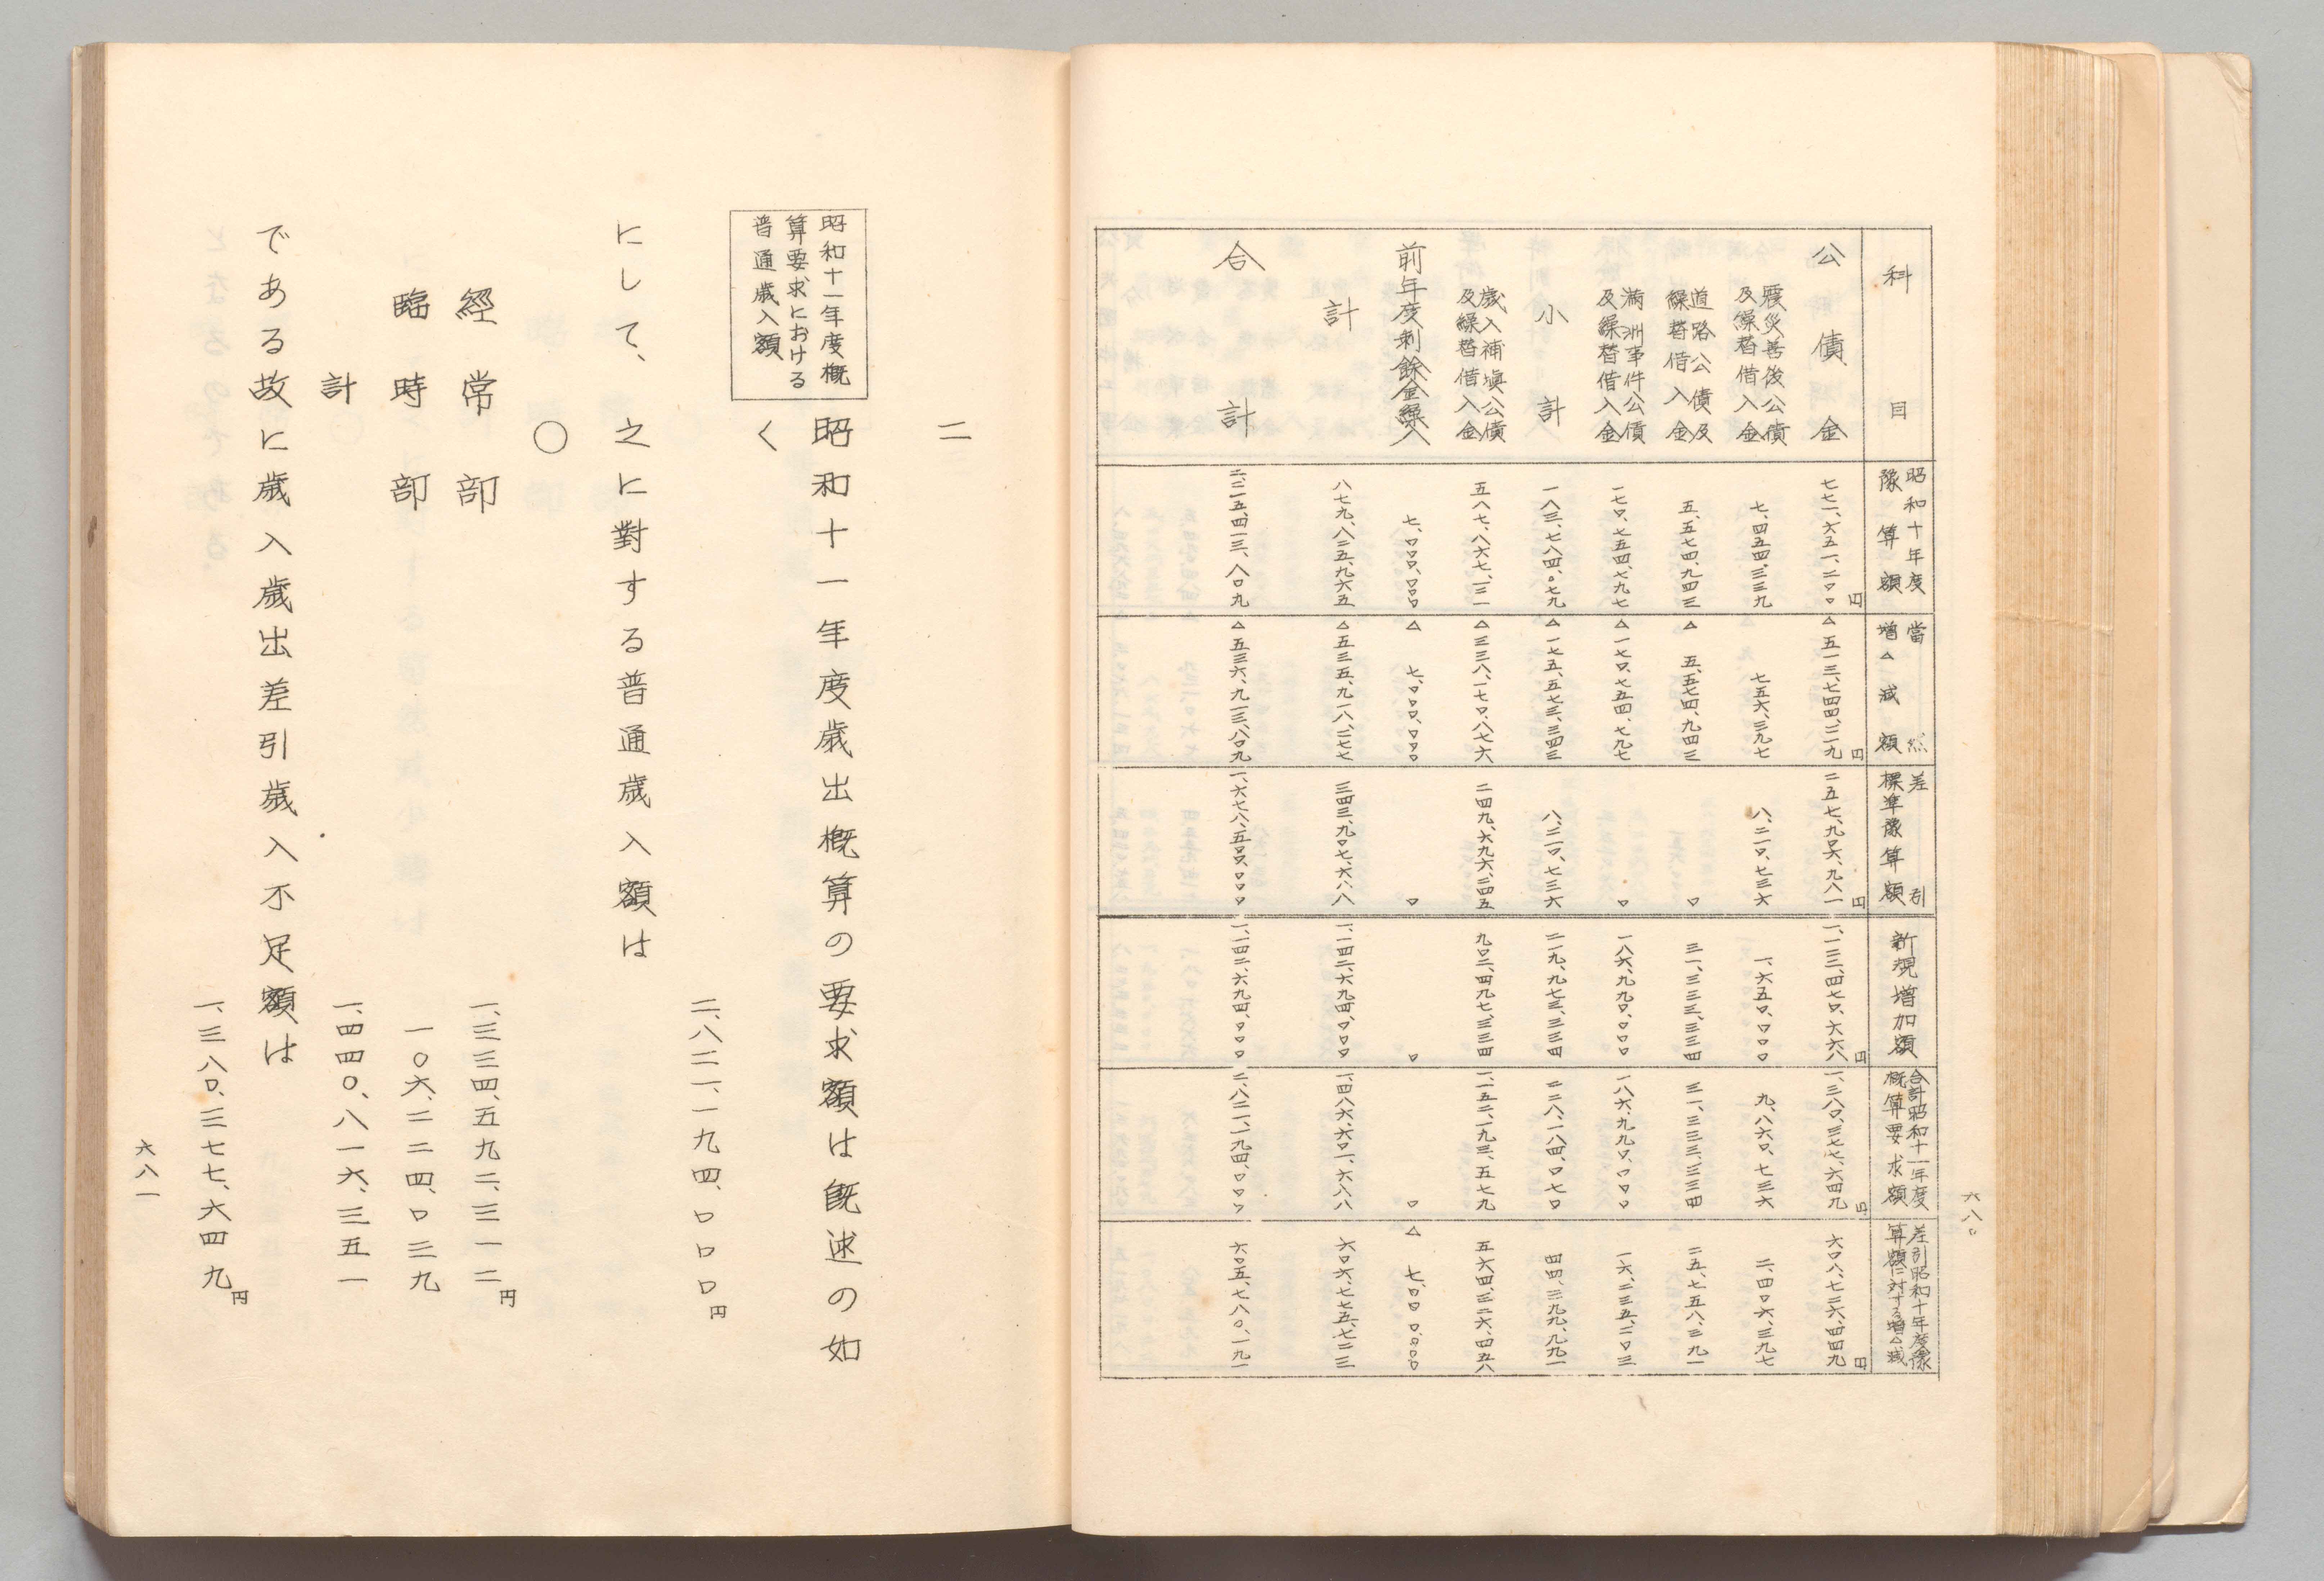 科目
昭和十年度
豫算額
當然
增△減額
差引
標準豫算額
新規増加額
合計昭和十一年度
概算要求額
差引昭和十年度豫
算額に対する増△減
公債金 七七一、六五一、二〇〇円 △五一三、七四四、二一九円 二五七、九〇六、九八一円 一、一二二、四七〇、六六八円 一、三八〇、三七七、六四九円 六〇八、七二六、四四九円
震災善後公債
及繰替借入金 七、四五四、三三九 七五六、三九七 八、二一〇、七三六 一、六五〇、〇〇〇 九、八六〇、七三六 二、四〇六、三九七
道路公債及
繰替借入金 五、五七四、九四三 △五、五七四、九四三 〇 三一、三三三、三三四 三一、三三三、三三四 二五、七五八、三九一
満洲事件公債
及繰替借入金 一七〇、七五四、七九七 △一七〇、七五四、七九七 〇 一八六、九九〇、〇〇〇 一八六、九九〇、〇〇〇 一六、二三五、二〇三
小計 一八三、七八四、〇七九 △一七五、五七三、三四三 八、二一〇、七三六 二一九、九七三、三三四 二二八、一八四、〇七〇 四四、三九九、九九一
歳入補塡公債
及繰替借入金 五八七、八六七、一二一 △三三八、一七〇、八七六 二四九、六九六、二四五 九〇二、四九七、三三四 一、一五二、一九三、五七九 五六四、三二六、四五八
前年度剰餘金繰入 七、〇〇〇、〇〇〇 △七、〇〇〇、〇〇〇 〇 〇 〇 △七、〇〇〇、〇〇〇
計 八七九、八二五、九六五 △五三五、九一八、二七七 三四三、九〇七、六八八 一、一四二、六九四、〇〇〇 一、四八六、六〇一、六八八 六〇六、七七五、七二三
合計 二、二一五、四一三、八〇九 △五三六、九一三、八〇九 一、六七八、五〇〇、〇〇〇 一、一四二、六九四、〇〇〇 二、八二一、一九四、〇〇〇 六〇五、七八〇、一九一
六八〇
二
昭和十一年度概
算要求における
普通歳入額
昭和十一年度歳出概算の要求額は既述の如
く
二、八二一、一九四、〇〇〇円
にして、之に對する普通歳入額は
〇
經常部 一、三三四、五九二、三一二円
臨時部 一〇六、二二四、〇三九
計 一、四四〇、八一六、三五一
である故に歳入歳出差引歳入不足額は
一、三八〇、三七七、六四九円
六八一